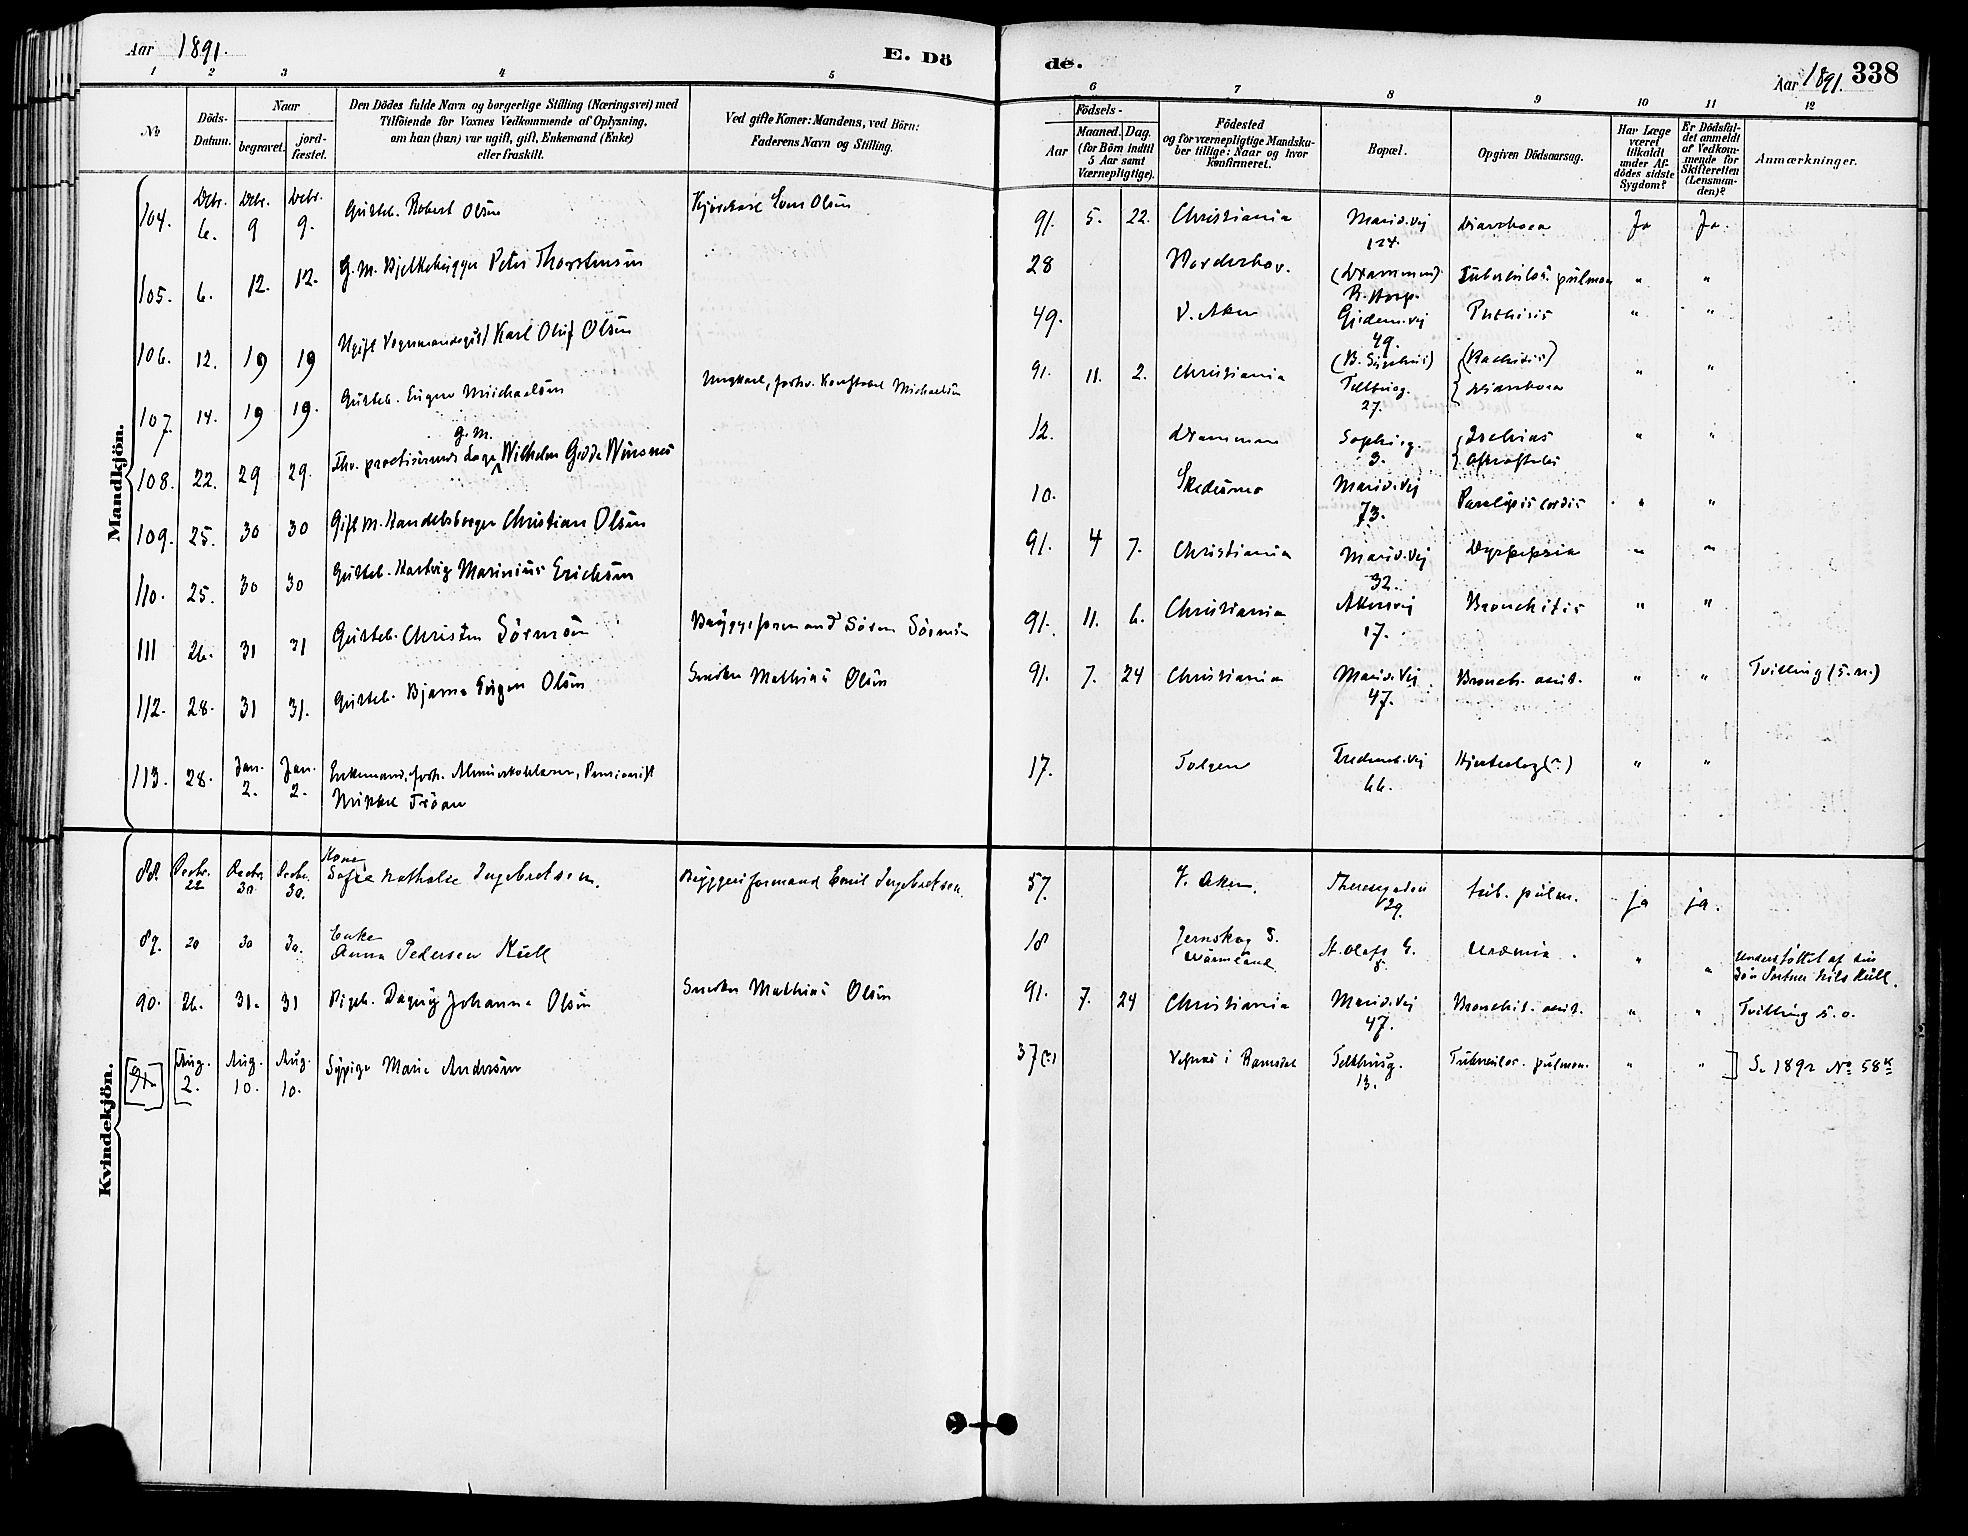 Aar 1891.
E. Dö
de.
Aar 1891. 338
1 2 3 4 5
6 7 8 9 10 11 12
No
Döds-
Datum.
Naar
begravet.
jord-
fæstet.
Den Dödes fulde Navn og borgerlige Stilling (Næringsvei) med
Tilföiende for Voxnes Vedkommende af Oplysning,
om han (hun) var ugift, gift, Enkemand (Enke)
eller fraskilt.
Ved gifte Koner: Mandens, ved Börn:
Faderens Navn og Stilling.
Födsels-
Aar
Maaned. Dag.
(for Börn indtil
5 Aar samt
Værnepligtige).
Födested
og for værnepligtige Mandska-
ber tillige: Naar og hvor
konfirmeret.
Bopæl.
Opgiven Dödsaarsag.
Har Læge
været
tilkaldt
under Af-
dödes sidste
Sygdom?
Er Dödsfal-
det anmeldt
af Vedkom-
mende for
Skifteretten
(Lensman-
den)?
Anmærkninger.
Mandkjön.
104. Debr. 6. Debr. 9 Debr. 9. Gutteb. Robert Olsen Olsen 91. 5. 22. Christiania Marid.vej 124. Diarrhoea Ja Ja.
105. 6. 12. 12. G. M. Peter Thorstensen 28 Norderhov. (Drammen) Tuberkulos. pulmon " "
106. 12. 19 19 Ugift Karl Oluf Olsen 49. V. Aker 49. Phthisis " "
107. 14. 19 19. Gutteb. Eugen Michaelsen Ungkarl, forhv. Konstabel Michaelsen 91. 11. 2. Christiania 27. (Rachitis) Diarrhoea " "
108. 22. 29 29. Fhv. practiserende Læge g. M. Wilhelm Gedde Winsnes 12. Drammen Sophieg. 3. Ischias Afkræftelse " "
109. 25. 30 30 Gift M. Handelsborger Christian Olsen 10. Skedsmo Marid.vej 73. Paralysis cordis " "
110. 25. 30 30 Gutteb. Hartvig Marinius Ericksen 91. 4 7. Christiania Marid.vej 32. Dyspepsia " "
111 26. 31 31 Gutteb. Christen Sörensen Bryggeformand Sören Sörensen 91. 11. 6. Christiania Akersvej 17. Bronchitis " "
112. 28. 31 31. Gutteb. Bjarne Olsen Snedker Mathias Olsen 91. 7. 24 Christiania Marid.Vej 47. Bronch. acut. " " Tvilling (s. n.)
113. 28. Jan. 2. Jan. 2. Enkemand, forh. Almueskolelærer, Pensionist
Mikkel Tröan 17. Tolgen Fredensb.vej 66. Hjerteslag (?) " "
Kvindekjön.
88. Decbr. 22 Decbr. 30 Decbr. 30. Kone Sofie Nathalie Ingebretsen. Bryggeriformand Emil Ingebretsen. 57. V. Aker. Theresegaden 29. tub. pulm. ja ja.
89. 20 30 30. Enke Anna Pedersen Küll 18 Jernskog S. Wärmland St. Olafs G. 8. Uræmia. " " Understöttet af sin Sön Nils Küll.
90. 26. 31. 31 Pigeb. Dagny Johanna Olsen Snedker Mathias Olsen 91. 7. 24 Christiania Marid.Vej 47. Bronchit. acut. " " Tvilling s. o.
[91] [Aug. 2. Aug. 10. Aug. 10. Sypige Marie Andersen 37(?) i Ramsdal Telthusg. 13. Tuberculos. pulmon. " " ] S. 1892 No 58 K